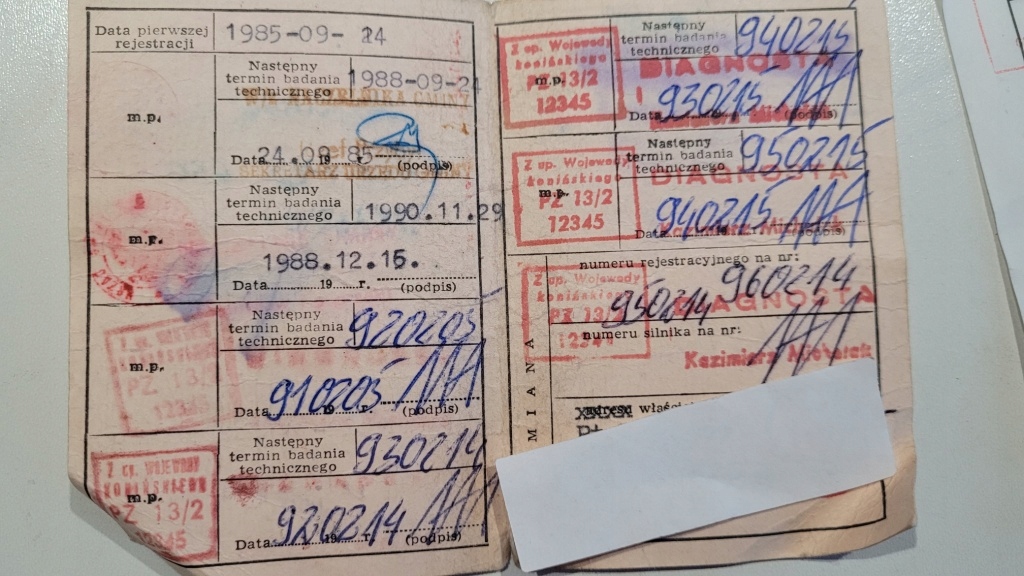 Data pierwszej rejestracji 1985-09- 24
Następny termin badania technicznego 1988-09-21
m.p.
SEKRETARZ URZĘDU GMINY
Data 24. 9. 19 85 r. (podpis)
Następny termin badania technicznego 1990.11.29
m.p.
1988.12.15.
Data 19 r. (podpis)
Następny termin badania technicznego 920205
m.p.
PZ 13/2
12345
Data 910205 r. (podpis)
Następny termin badania technicznego 930214
Z up. WOJEWODY
KONIŃSKIEGO
m.p.
PZ 13/2
12345
Data 920214 19 r. (podpis)
Następny termin badania technicznego 940215
Z up. Wojewody
konińskiego
m.p.
PZ 13/2
12345
DIAGNOSTA
Data 930215 (podpis)
Następny termin badania technicznego 950215
Z up. Wojewody
konińskiego
m.p.
PZ 13/2
12345
DIAGNOSTA
Data 940215 (podpis)
ZMIANA
numeru rejestracyjnego na nr:
Z up. Wojewody
konińskiego
PZ 13/2
12345
950214 960214
DIAGNOSTA
numeru silnika na nr:
Kazimierz
adresu właści